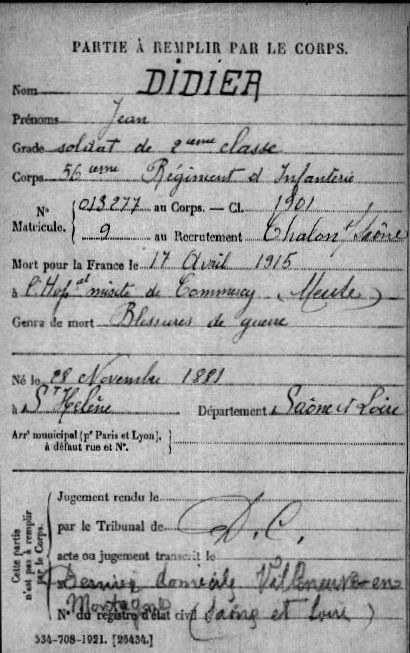 PARTIE À REMPLIR PAR LE CORPS.
Nom DIDIER
Prénoms Jean
Grade soldat de 2ieme classe
Corps 56ieme Régiment d'Infanterie
N° Matricule. { 013277 au Corps. — Cl. 1901
9 au Recrutement Chalon s/ Saône
Mort pour la France le 17 Avril 1915
à l'Hopital mixte de Commercy (Meuse)
Genre de mort Blessures de guerre
Né le 28 Novembre 1881
à St Helène Département Saône et Loire
Arrt municipal (pr Paris et Lyon), à défaut rue et N°.
Cette partie n'est pas à remplir par le Corps.
Jugement rendu le
par le Tribunal de D.C.
acte ou jugement transcrit le
Dernier domicile Villeneuve en
Montagne (Saône et Loire)
N° du registre d'état civil
534-708-1921. [26434.]